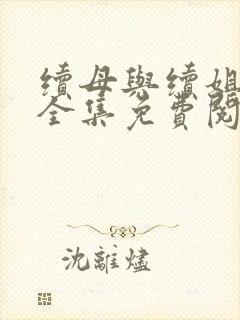 續母與續姐
全集免費閱
沈離燼